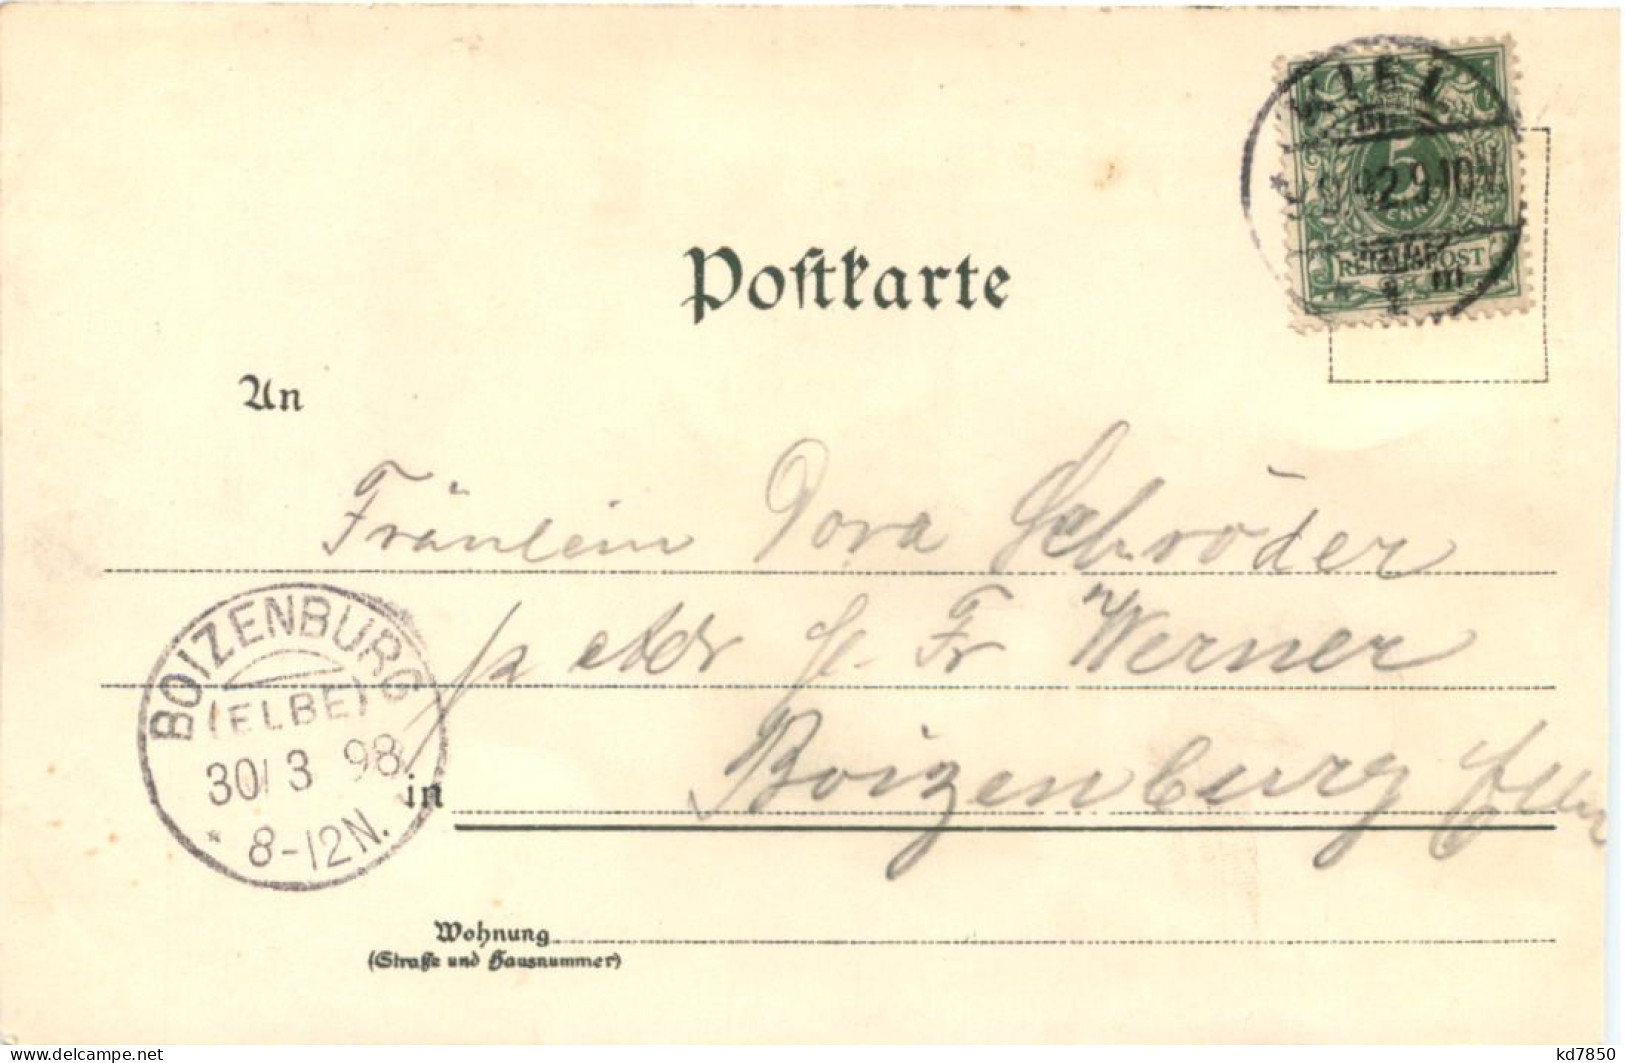 KIEL
5
PFENNIG
REICHSPOST
Postkarte
An
Fräulein Dora Schröder
p Adr H. Fr Werner
BOIZENBURG
(ELBE)
30/3 98
* 8-12N.
in Boizenburg Elbe
Wohnung
(Straße und Hausnummer)
www.delcampe.net
kd7850